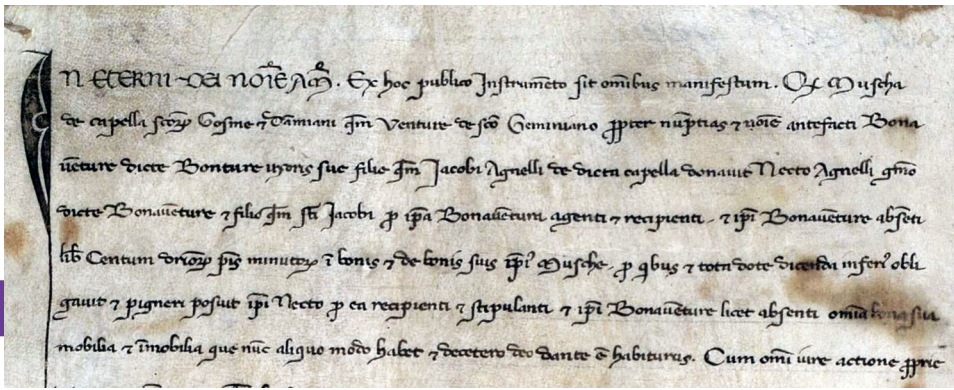 IN ETERNI DEI NOIE AM. Ex hoc publico Instrumēto sit omībus manifestum. Qd Muscha
de capella scōꝝ Cosme ⁊ Damiani qm̄ Venture de scō Geminiano ꝓpter nuptias ⁊ noīe antefacti Bona
uēture dicte Bonture uxoris sue filie qm̄ Jacobi Agnelli de dicta capella donauit Necto Agnelli gm̄o
dicte Bonauēture ⁊ filio qm̄ sti Jacobi ꝓ ip̄a Bonauētura agenti ⁊ recipienti ⁊ ip̄i Bonauēture absēti
lib̄ Centum drioꝝ pis̄ minutoꝝ ī bonis ⁊ de bonis suis ip̄i Musche, ꝓ qbus ⁊ tota dote dicenda inferi obli
gauit ⁊ pigneri posuit ip̄i Necto ꝓ ea recipienti ⁊ stipulanti ⁊ ip̄i Bonauēture licet absenti omīa bona sua
mobilia ⁊ īmobilia que nūc aliquo modo habet ⁊ decetero deo dante ē habiturus. Cum omī iure actione ꝓprie